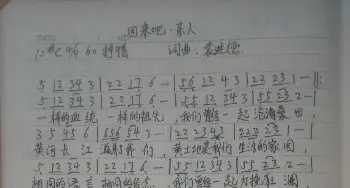 回来吧·亲人
1=#C 4/4 60 抒情 词曲:
5 12 34 3 | 22 17 6 - | 56 12 4 3 | 22 23 1 - |
5 12 34 3 | 22 17 6 - | 55 12 34 3 | 55 23 2 - |
一样的血统 一样的祖先 我们曾经一起沧海桑田
3 5 45 6 | 656 54 3 - | 22 23 43 | 22 23 1 - |
黄河长江 哺育我们 黄土地是我们生活的家园
5 12 34 3 | 22 17 6 - | 55 12 34 3 | 55 23 2 - |
相同的语言 我们曾经一起力挽狂澜